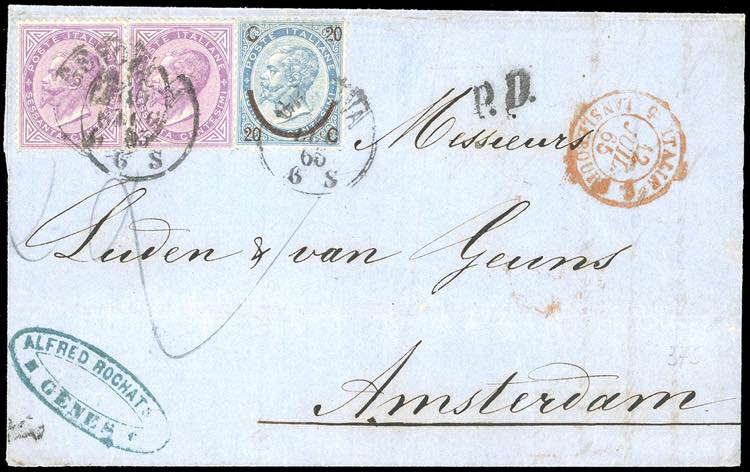 POSTE ITALIANE
SESSANTA CENTESIMI
POSTE ITALIANE
CENTESIMI
C 20
POSTE ITALIANE
20 C
65
6 S
65
6 S
P.D.
Messieurs
ITALIE
5 LANSLEB
12
JUIL
65
Luden & van Geuns
Amsterdam
ALFRED ROCHAT
GENES
375